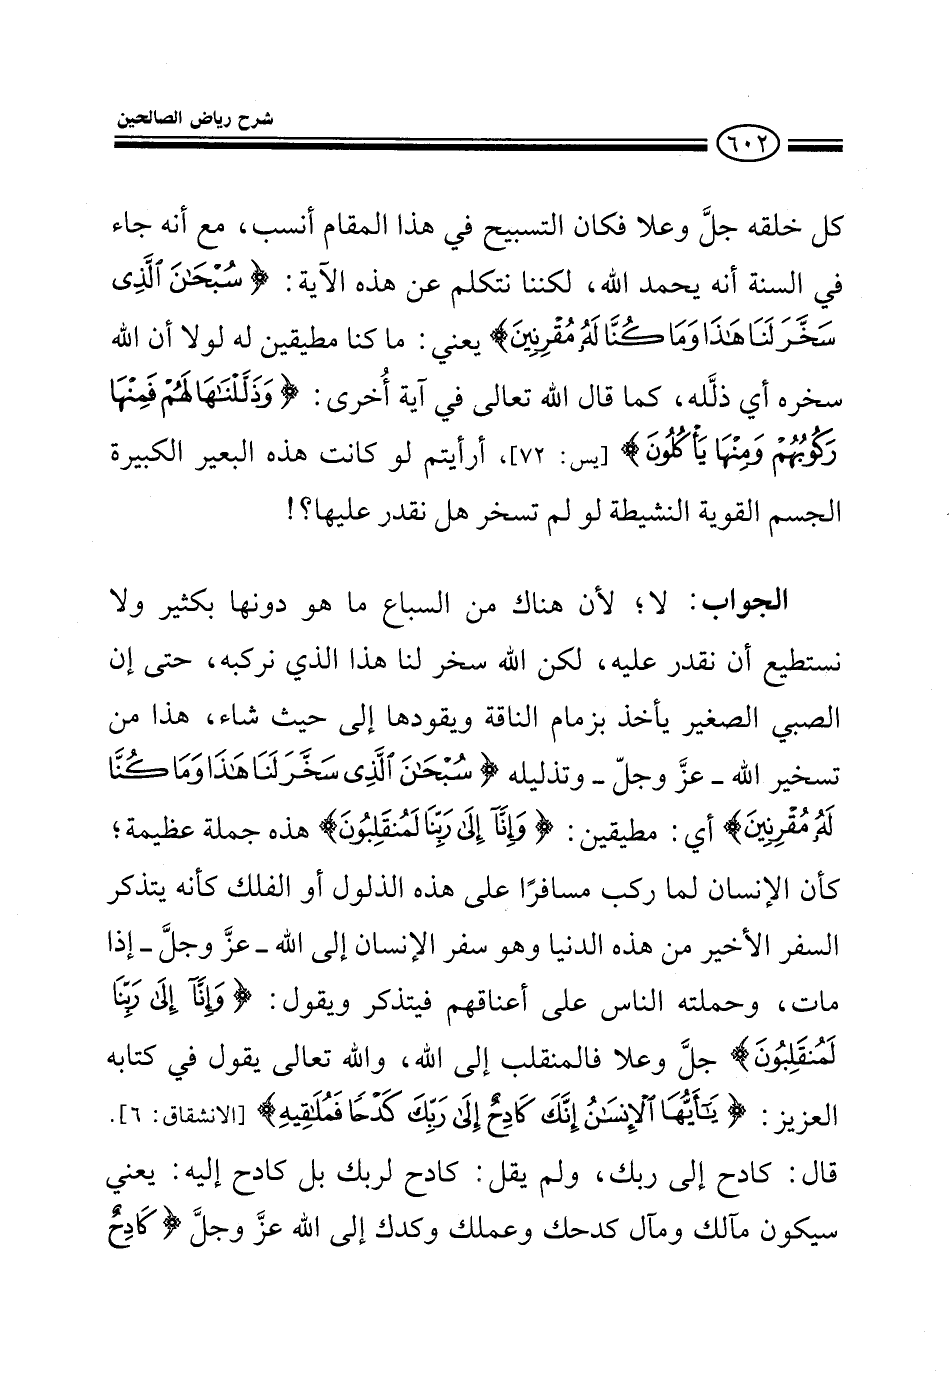 شرح رياض الصالحين
٦٠٢
كل خلقه جلَّ وعلا فكان التسبيح في هذا المقام أنسب، مع أنه جاء
في السنة أنه يحمد الله، لكننا نتكلم عن هذه الآية: ﴿ سُبْحَٰنَ ٱلَّذِى
سَخَّرَ لَنَا هَٰذَا وَمَا كُنَّا لَهُۥ مُقْرِنِينَ﴾ يعني: ما كنا مطيقين له لولا أن الله
سخره أي ذلَّله، كما قال الله تعالى في آية أُخرى: ﴿ وَذَلَّلْنَٰهَا لَهُمْ فَمِنْهَا
رَكُوبُهُمْ وَمِنْهَا يَأْكُلُونَ﴾ [يس: ٧٢]، أرأيتم لو كانت هذه البعير الكبيرة
الجسم القوية النشيطة لو لم تسخر هل نقدر عليها؟!
الجواب: لا؛ لأن هناك من السباع ما هو دونها بكثير ولا
نستطيع أن نقدر عليه، لكن الله سخر لنا هذا الذي نركبه، حتى إن
الصبي الصغير يأخذ بزمام الناقة ويقودها إلى حيث شاء، هذا من
تسخير الله ـ عزَّ وجلّ ـ وتذليله ﴿ سُبْحَٰنَ ٱلَّذِى سَخَّرَ لَنَا هَٰذَا وَمَا كُنَّا
لَهُۥ مُقْرِنِينَ﴾ أي: مطيقين: ﴿ وَإِنَّآ إِلَىٰ رَبِّنَا لَمُنقَلِبُونَ﴾ هذه جملة عظيمة؛
كأن الإنسان لما ركب مسافرًا على هذه الذلول أو الفلك كأنه يتذكر
السفر الأخير من هذه الدنيا وهو سفر الإنسان إلى الله ـ عزَّ وجلَّ ـ إذا
مات، وحملته الناس على أعناقهم فيتذكر ويقول: ﴿ وَإِنَّآ إِلَىٰ رَبِّنَا
لَمُنقَلِبُونَ﴾ جلَّ وعلا فالمنقلب إلى الله، والله تعالى يقول في كتابه
العزيز: ﴿ يَٰٓأَيُّهَا ٱلْإِنسَٰنُ إِنَّكَ كَادِحٌ إِلَىٰ رَبِّكَ كَدْحًا فَمُلَٰقِيهِ﴾ [الانشقاق: ٦].
قال: كادح إلى ربك، ولم يقل: كادح لربك بل كادح إليه: يعني
سيكون مآلك ومآل كدحك وعملك وكدك إلى الله عزَّ وجلَّ ﴿ كَادِحٌ